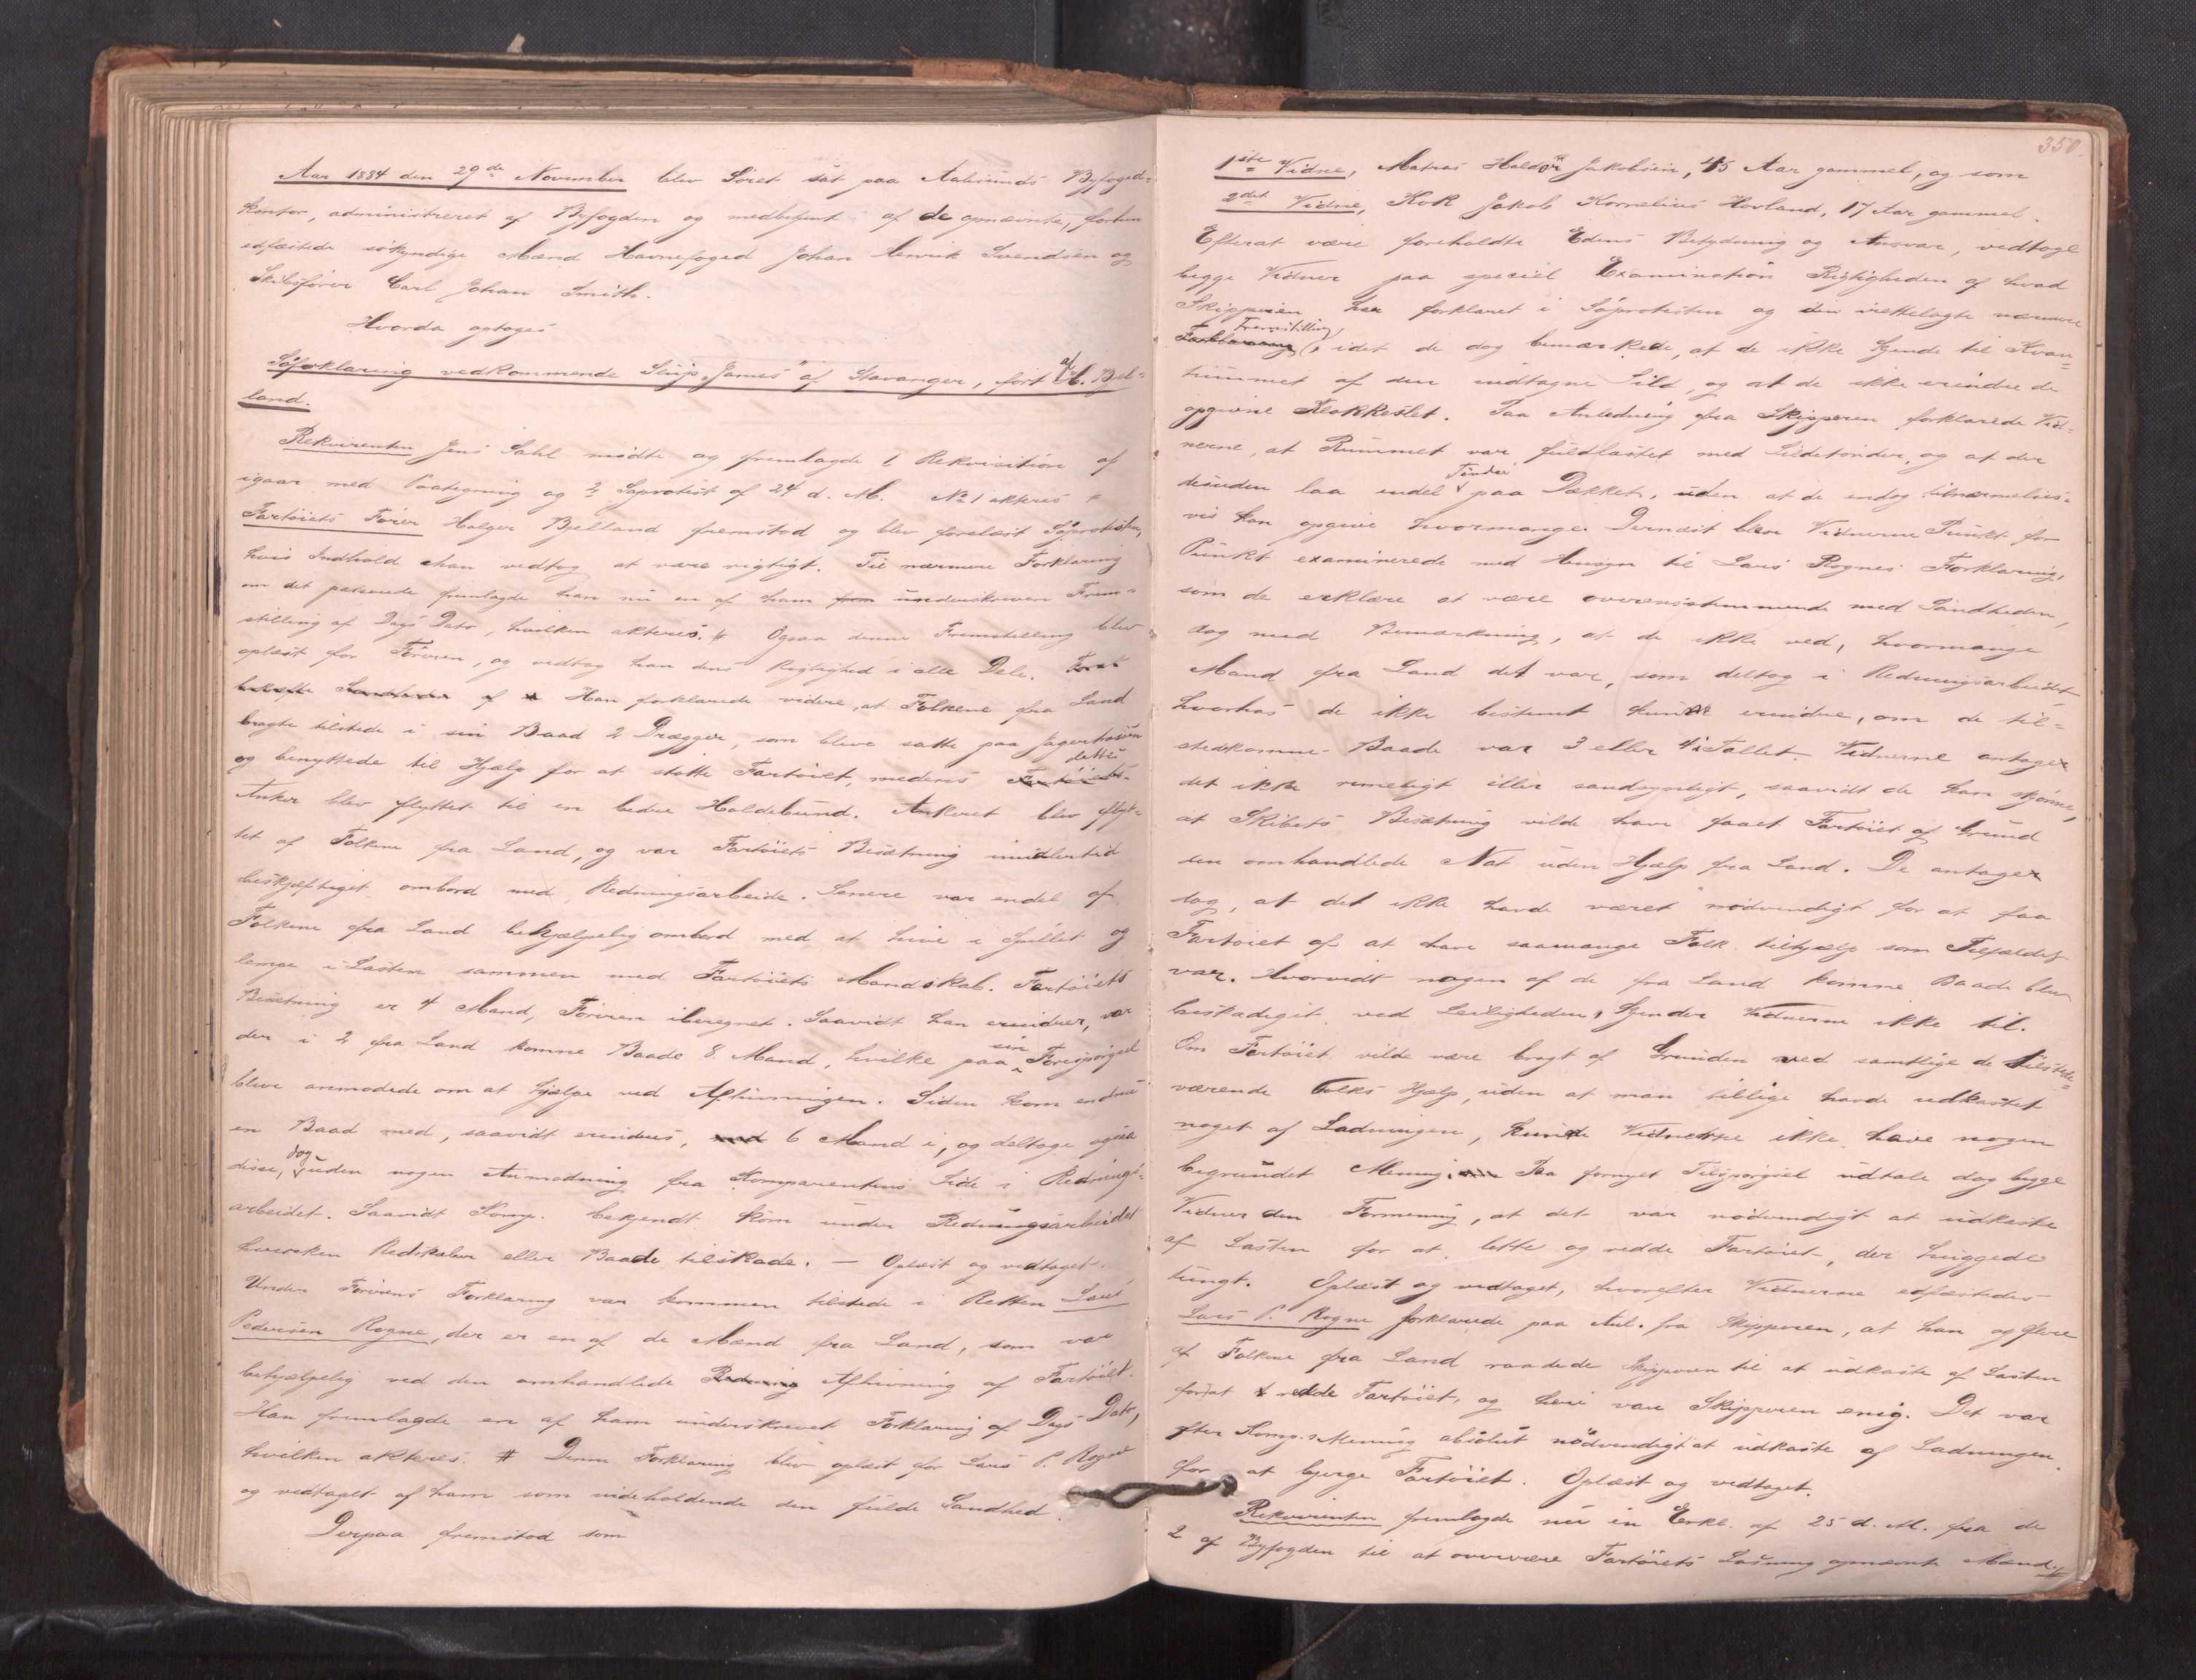 Aar 1884 den 29de November blev Søret sat paa Aalesunds Byfoged-
kontor, administreret af Byfogden og medbetjent af de opnævnte, forhen
edfæstede søkyndige Mænd Havnefoged Johan Henrik Svendsen og
Skibsfører Carl Johan Smith.
Hvorda optoges
Søforklaring vedkommende Slup „James" af Stavanger, ført af H. Bjel-
land.
Rekvirenten Jens Dahl mødte og fremlagde 1 Rekvisition af
igaar med Paategning og 2 Søprotest af 24 d. M. No 1 akteres #
Fartøiets Fører Holger Bjelland fremstod og blev forelæst Søprotesten,
hvis Indhold han vedtog at være rigtigt. Til nærmere Forklaring
om det passerede fremlagde han nu en af ham underskreven Frem-
stilling af Dags Dato, hvilken akteres. # Ogsaa denne Fremstilling blev
oplæst for Føreren, og vedtog han dens Rigtighed i alle Dele. Forat
bekræfte Sandheden af Han forklarede videre, at Folkene fra Land
bragte tilstede i sin Baad 2 Drægger, som bleve satte paa Jagertrossen
og benyttede til Hjælp for at støtte Fartøiet, medens Fartøiets dettes
Anker blev flyttet til en bedre Holdebund. Ankeret blev flyt-
tet af Folkene fra Land, og var Fartøiets Besætning imidlertid
beskjæftiget ombord med Redningsarbeide. Senere var endel af
Folkene fra Land behjælpelig ombord med at hive i Spillet og
lempe i Lasten sammen med Fartøiets Mandskab. Fartøiets
Besætning er 4 Mand, Føreren iberegnet. Saavidt han erindrer, var
der i 2 fra Land komne Baade 8 Mand, hvilke paa sin Forespørgsel
bleve anmodede om at hjælpe ved Afhivningen. Siden kom endnu
en Baad med, saavidt erindres, med 6 Mand i, og deltoge ogsaa
disse, dog uden nogen Anmodning fra Komparentens Side i Rednings-
arbeidet. Saavidt Komp. bekjendt kom under Redningsarbeidet
hverken Redskaber eller Baade tilskade. — Oplæst og vedtaget.
Under Førerens Forklaring var kommen tilstede i Retten Lars
Pedersen Rogne, der er en af de Mænd fra Land, som var
behjælpelig ved den omhandlede Redning Afhivning af Fartøiet.
Han fremlagde en af ham underskrevet Forklaring af Dags Dato,
hvilken akteres. # Denne Forklaring blev oplæst for Lars P. Rogne
og vedtaget af ham som indeholdende den fulde Sandhed.
Derpaa fremstod som
350.
1ste Vidne, Matros Haldor Jakobsen, 45 Aar gammel, og som
2det Vidne, Kok Jakob Kornelius Hovland, 17 Aar gammel.
Efterat være foreholdte Edens Betydning og Ansvar, vedtoge
begge Vidner paa speciel Examination Rigtigheden af hvad
Skipperen har forklaret i Søprotesten og den irettelagte nærmere
Forklaring Fremstilling, idet de dog bemærkede, at de ikke kjende til Kvan-
tummet af den indtagne Sild, og at de ikke erindre de
opgivne Klokkeslet. Paa Anledning fra Skipperen forklarede Vid-
nerne, at Rummet var fuldlastet med Sildetønder, og at der
desuden laa endel Tønder paa Dækket, uden at de endog tilnærmelses-
vis kan opgive hvormange. Dernæst blev Vidnerne Punkt for
Punkt examinerede med Hensyn til Lars Rognes Forklaring,
som de erklære at være overensstemmende med Sandheden,
dog med Bemærkning, at de ikke ved, hvormange
Mand fra Land det var, som deltog i Redningsarbeidet
hvorhos de ikke bestemt kunde erindre, om de til-
stedekomne Baade var 3 eller 4 i Tallet. Vidnerne antager
det ikke rimeligt eller sandsynligt, saavidt de kan skjønne,
at Skibets Besætning vilde have faaet Fartøiet af Grund
den omhandlede Nat uden Hjælp fra Land. De antager
dog, at det ikke havde været nødvendigt for at faa
Fartøiet af at have saamange Folk tilhjælp som Tilfældet
var. Hvorvidt nogen af de fra Land komne Baade blev
beskadiget ved Leiligheden, kjender Vidnerne ikke til.
Om Fartøiet vilde være bragt af Grunden ved samtlige de tilstede-
værende Folks Hjælp, uden at man tillige havde udkastet
noget af Ladningen, kunde Vidnerne ikke have nogen
begrundet Mening. Paa fornyet Tilspørgsel udtale dog begge
Vidner den Formening, at det var nødvendigt at udkaste
af Lasten for at lette og redde Fartøiet, der huggede
tungt. Oplæst og vedtaget, hvorefter Vidnerne edfæstedes
Lars P. Rogne forklarede paa Anl. fra Skipperen, at han og flere
af Folkene fra Land raadede Skipperen til at udkaste af Lasten
forat redde Fartøiet, og heri var Skipperen enig. Det var
efter Komp.s Mening absolut nødvendigt at udkaste af Ladningen
for at bjerge Fartøiet. Oplæst og vedtaget.
Rekvirenten fremlagde nu en Erkl. af 25 d. M. fra de
2 af Byfogden til at overvære Fartøiets Losning opnævnte Mænd. #